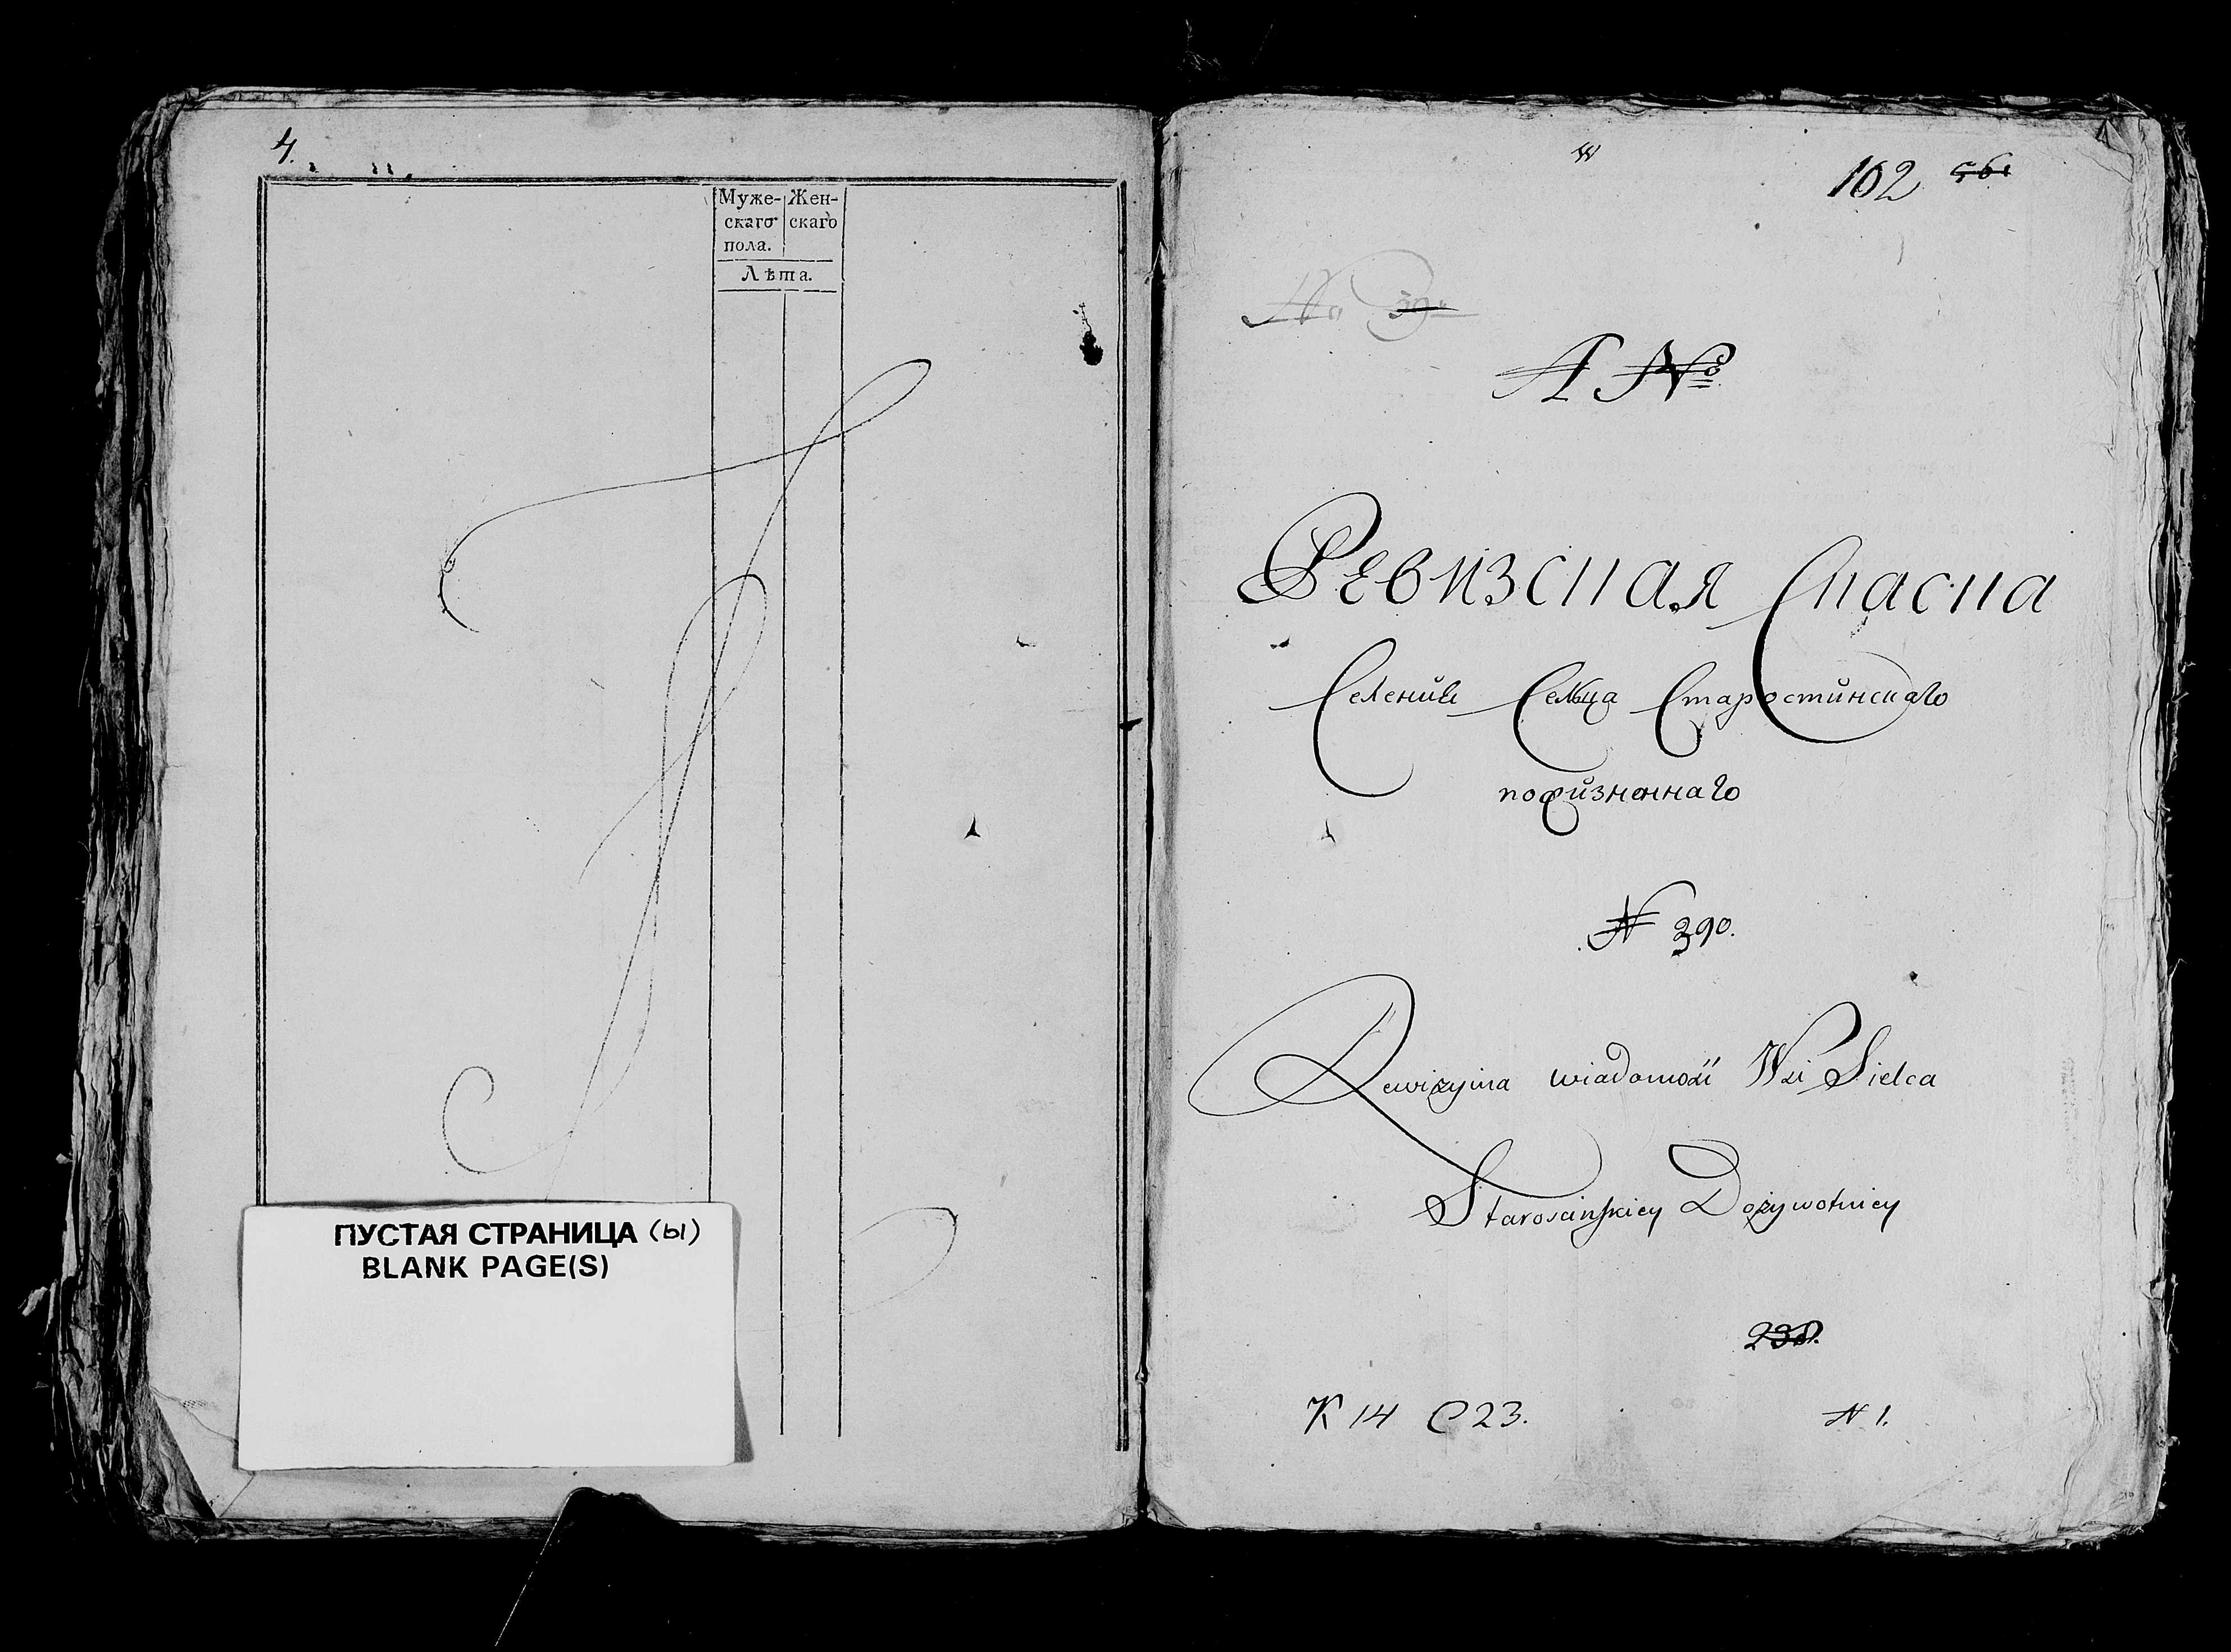 4.
Муже- Жен-
скаго скаго
пола.
Лѣта.
ПУСТАЯ СТРАНИЦА (Ы)
BLANK PAGE(S)
102 561
A №
Ревизская Скаска
Селения Сельца Старостинскаго
пожизненнаго
N 390.
Rewizyina wiadomość Wsi Sielca
Starościńskiey Dożywotniey
238.
К 14 С 23. N 1.